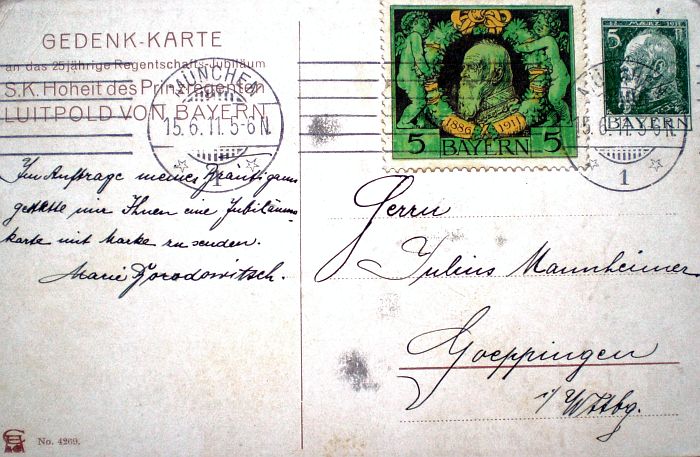 GEDENK-KARTE
an das 25jährige Regentschafts-Jubiläum
S.K. Hoheit des Prinzregenten
LUITPOLD VON BAYERN
MÜNCHEN
15.6.11.5-6N.
1
Im Auftrage meines Bräutigams
gestatte mir Ihnen eine Jubiläums
karte mit Marke zu senden.
Marie
1886 1911
5 5
BAYERN
5 5
BAYERN
MÜNCHEN
15.6.11.5-6N.
1
Herrn
Julius Mannheimer
Goeppingen
i/Wttbg.
No. 4269.